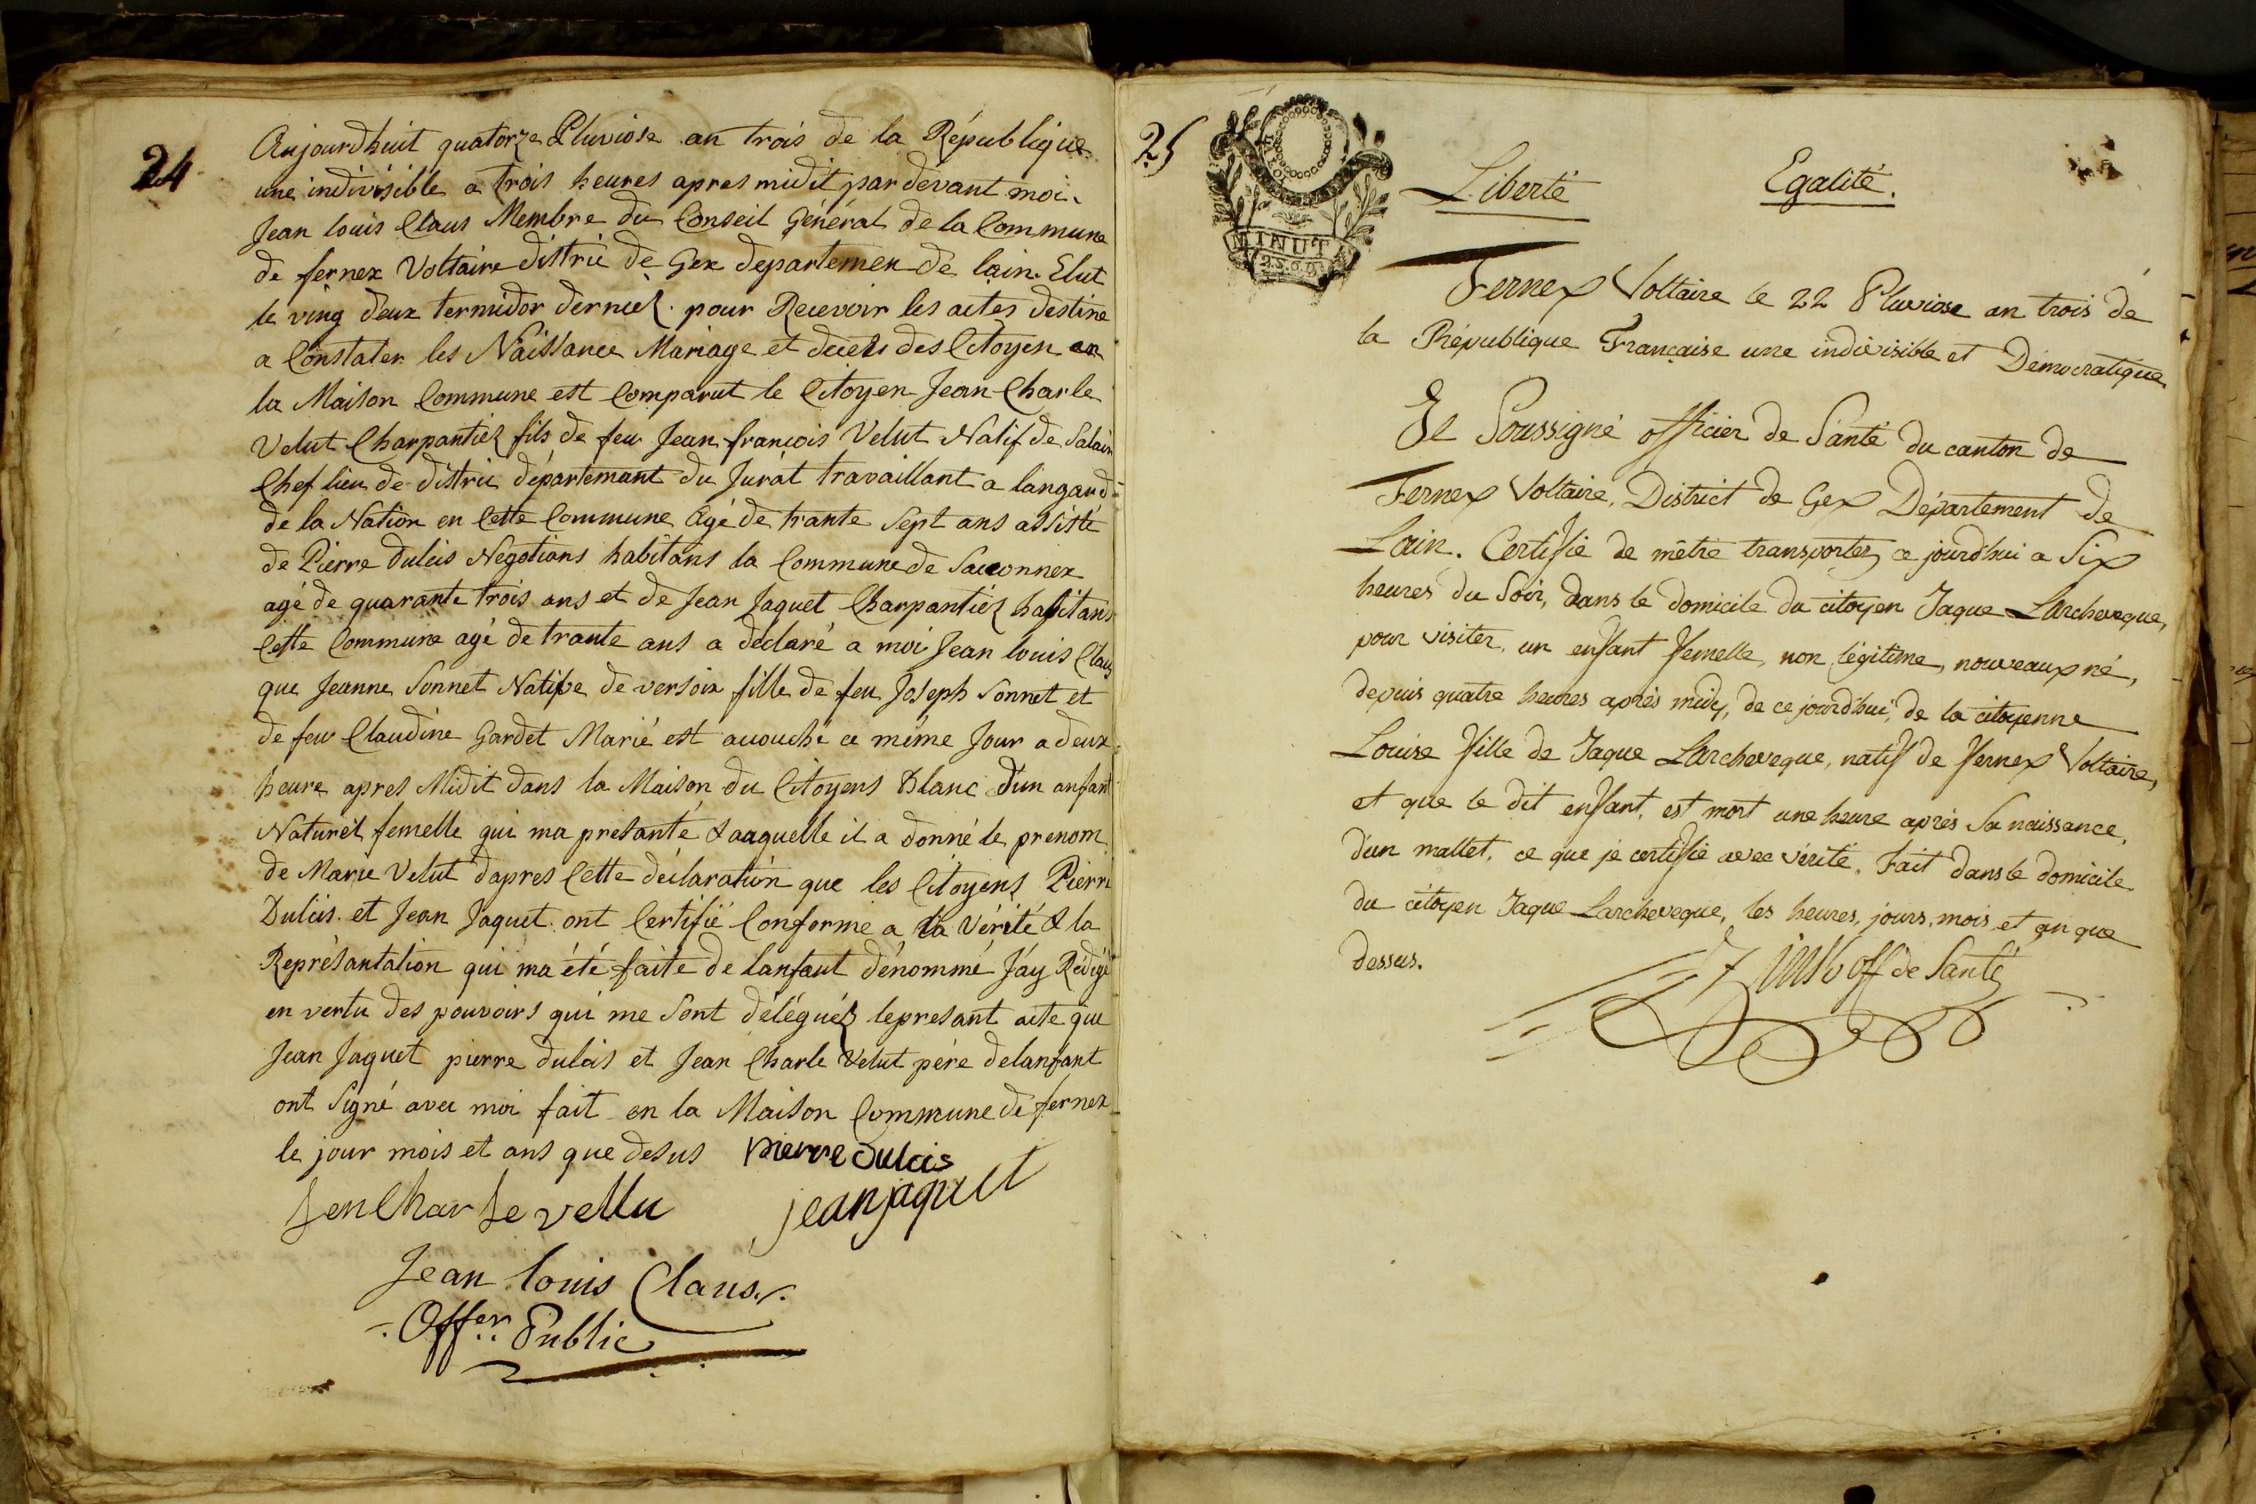 24
Aujourdhuit quatorze Pluviose an trois de la République
une indivisible a trois heures apres midit par devant moi
Jean louis Claus Membre du Conseil Général de la Commune
de fernex Voltaire distric de Gex departemen de lain. Elut
le ving deux termidor dernier pour Recevoir les actes destiné
a Constater les Naissance Mariage et décets des Citoyen en
la Maison Commune est Comparut le Citoyen Jean Charle
Velut Charpantiez fils de feu Jean françois Velut Natif de Salain
Chef lieu de distric département du Jurat travaillant a langard
de la Nation en Cette Commune Agé de trante Sept ans assisté
de Pierre Dulcis Negotians habitans la Commune de Saconnex
agé de quarante trois ans et de Jean Jaquet Charpantiez habitans
Cette Commune agé de trante ans a déclaré a moi Jean louis Claus
que Jeanne Sonnet Native de versoix fille de feu Joseph Sonnet et
de feu Claudine Gardet Marié est acouché ce même Jour a deux
heure apres Midit dans la Maison du Citoyens Blanc d'un anfant
Naturél femelle qui ma presanté & aaquelle il a donné le prenom
de Marie Velut dapres Cette déclaration que les Citoyens Pierre
Dulcis et Jean Jaquet ont Certifié Conforme a la Vérité & la
Représantation qui ma été faite de lanfant dénommé J'ay Rédigé
en vertu des pouvoirs qui me Sont délégués lepresant acte que
Jean Jaquet pierre dulcis et Jean Charle Velut pére delanfant
ont Signé avec moi fait en la Maison Commune de fernex
le jour mois et ans que desus pierre dulcis
Jen Charle vellu jean jaquet
Jean louis Claus
Offer. Public
25
MINUT
Liberté Egalité.
Fernex Voltaire le 22 Pluviose an trois de
la République Française une indivisible et Démocratique.
Je Soussigné officier de Santé du canton de
Fernex Voltaire, District de Gex Département de
Lain. Certifie de mêtre transportez ce jourd'hui a Six
heures du Soir, dans le domicile du citoyen Jaque Larcheveque,
pour visiter, un enfant femelle, non légitime, nouveaux né,
depuis quatre heures après midy, de ce jourd'hui, de la citoyenne
Louise fille de Jaque Larcheveque, natif de fernex Voltaire,
et que le dit enfant, est mort une heure après Sa naissance,
d'un mallet, ce que je certifie avec vérité. Fait dans le domicile
du citoyen Jaque Larcheveque, les heures, jours, mois et an que
dessus.
off de Santé